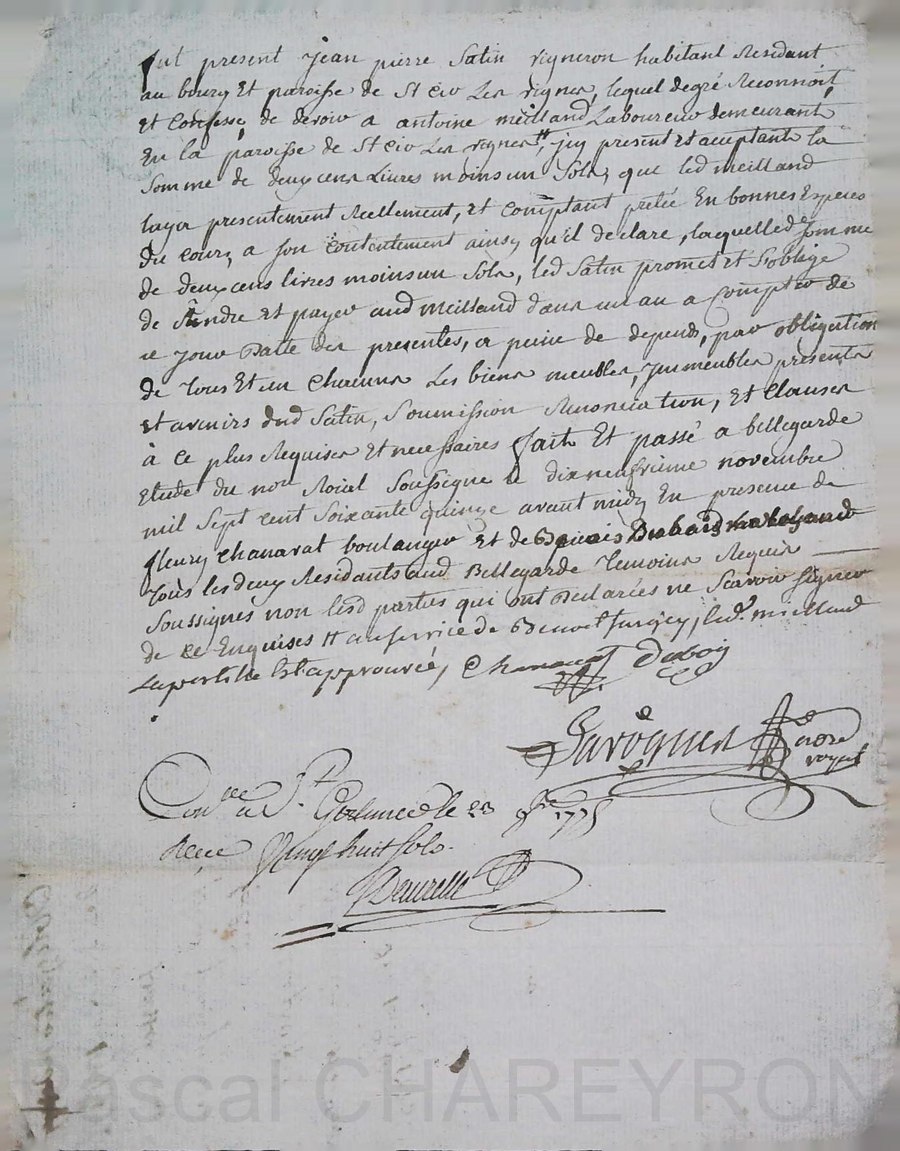 fut present jean pierre Satin vigneron habitant Residant
au bourg Et paroisse de St Cir Les vignes, lequel degré Reconnoit
Et Confesse, de devoir a antoine meilland Laboureur demeurant
En la paroisse de St Cir Les vignes #, jcy present Et aceptant la
Somme de deux cens Livres moins un Sols, que led meilland
laya presentement Reellement, Et Comptant pretée En bonnes Especes
du Cours, a Son Contentement ainsy qu'il declare, laquelle de Somme
de deux cens livres moins un Sols, led Satin promet Et S'oblige
de Rendre Et payer aud meilland dans un an a Compter de
ce jour Datte des presentes, a peine de depends, par obligation
de tous Et un Chacuns Les biens meubles, jmmeubles presents
Et avenirs dud Satin, Soumission Renonciation, Et Clauses
à ce plus Requises Et necessaires fait Et passé a bellegarde
Etude du no.re Roial Soussigné le dix neufvieme novembre
mil Sept cent Soixante quinze avant midy En presence de
fleury Chanavat boulanger Et de
tous les deux Residants aud Bellegarde temoins Requis
Soussignés non lesd parties qui ont Declarées ne Scavoir Signer
de ce Enquises # au Service de Benoit led. meilland
Lapostille Est approuvée, Chanavat Duboy
Lavognes
no.re
royal
Con.lee a S.t le 23 9bre 1775
Recu Vingt huit sols.
Pascal CHAREYRON